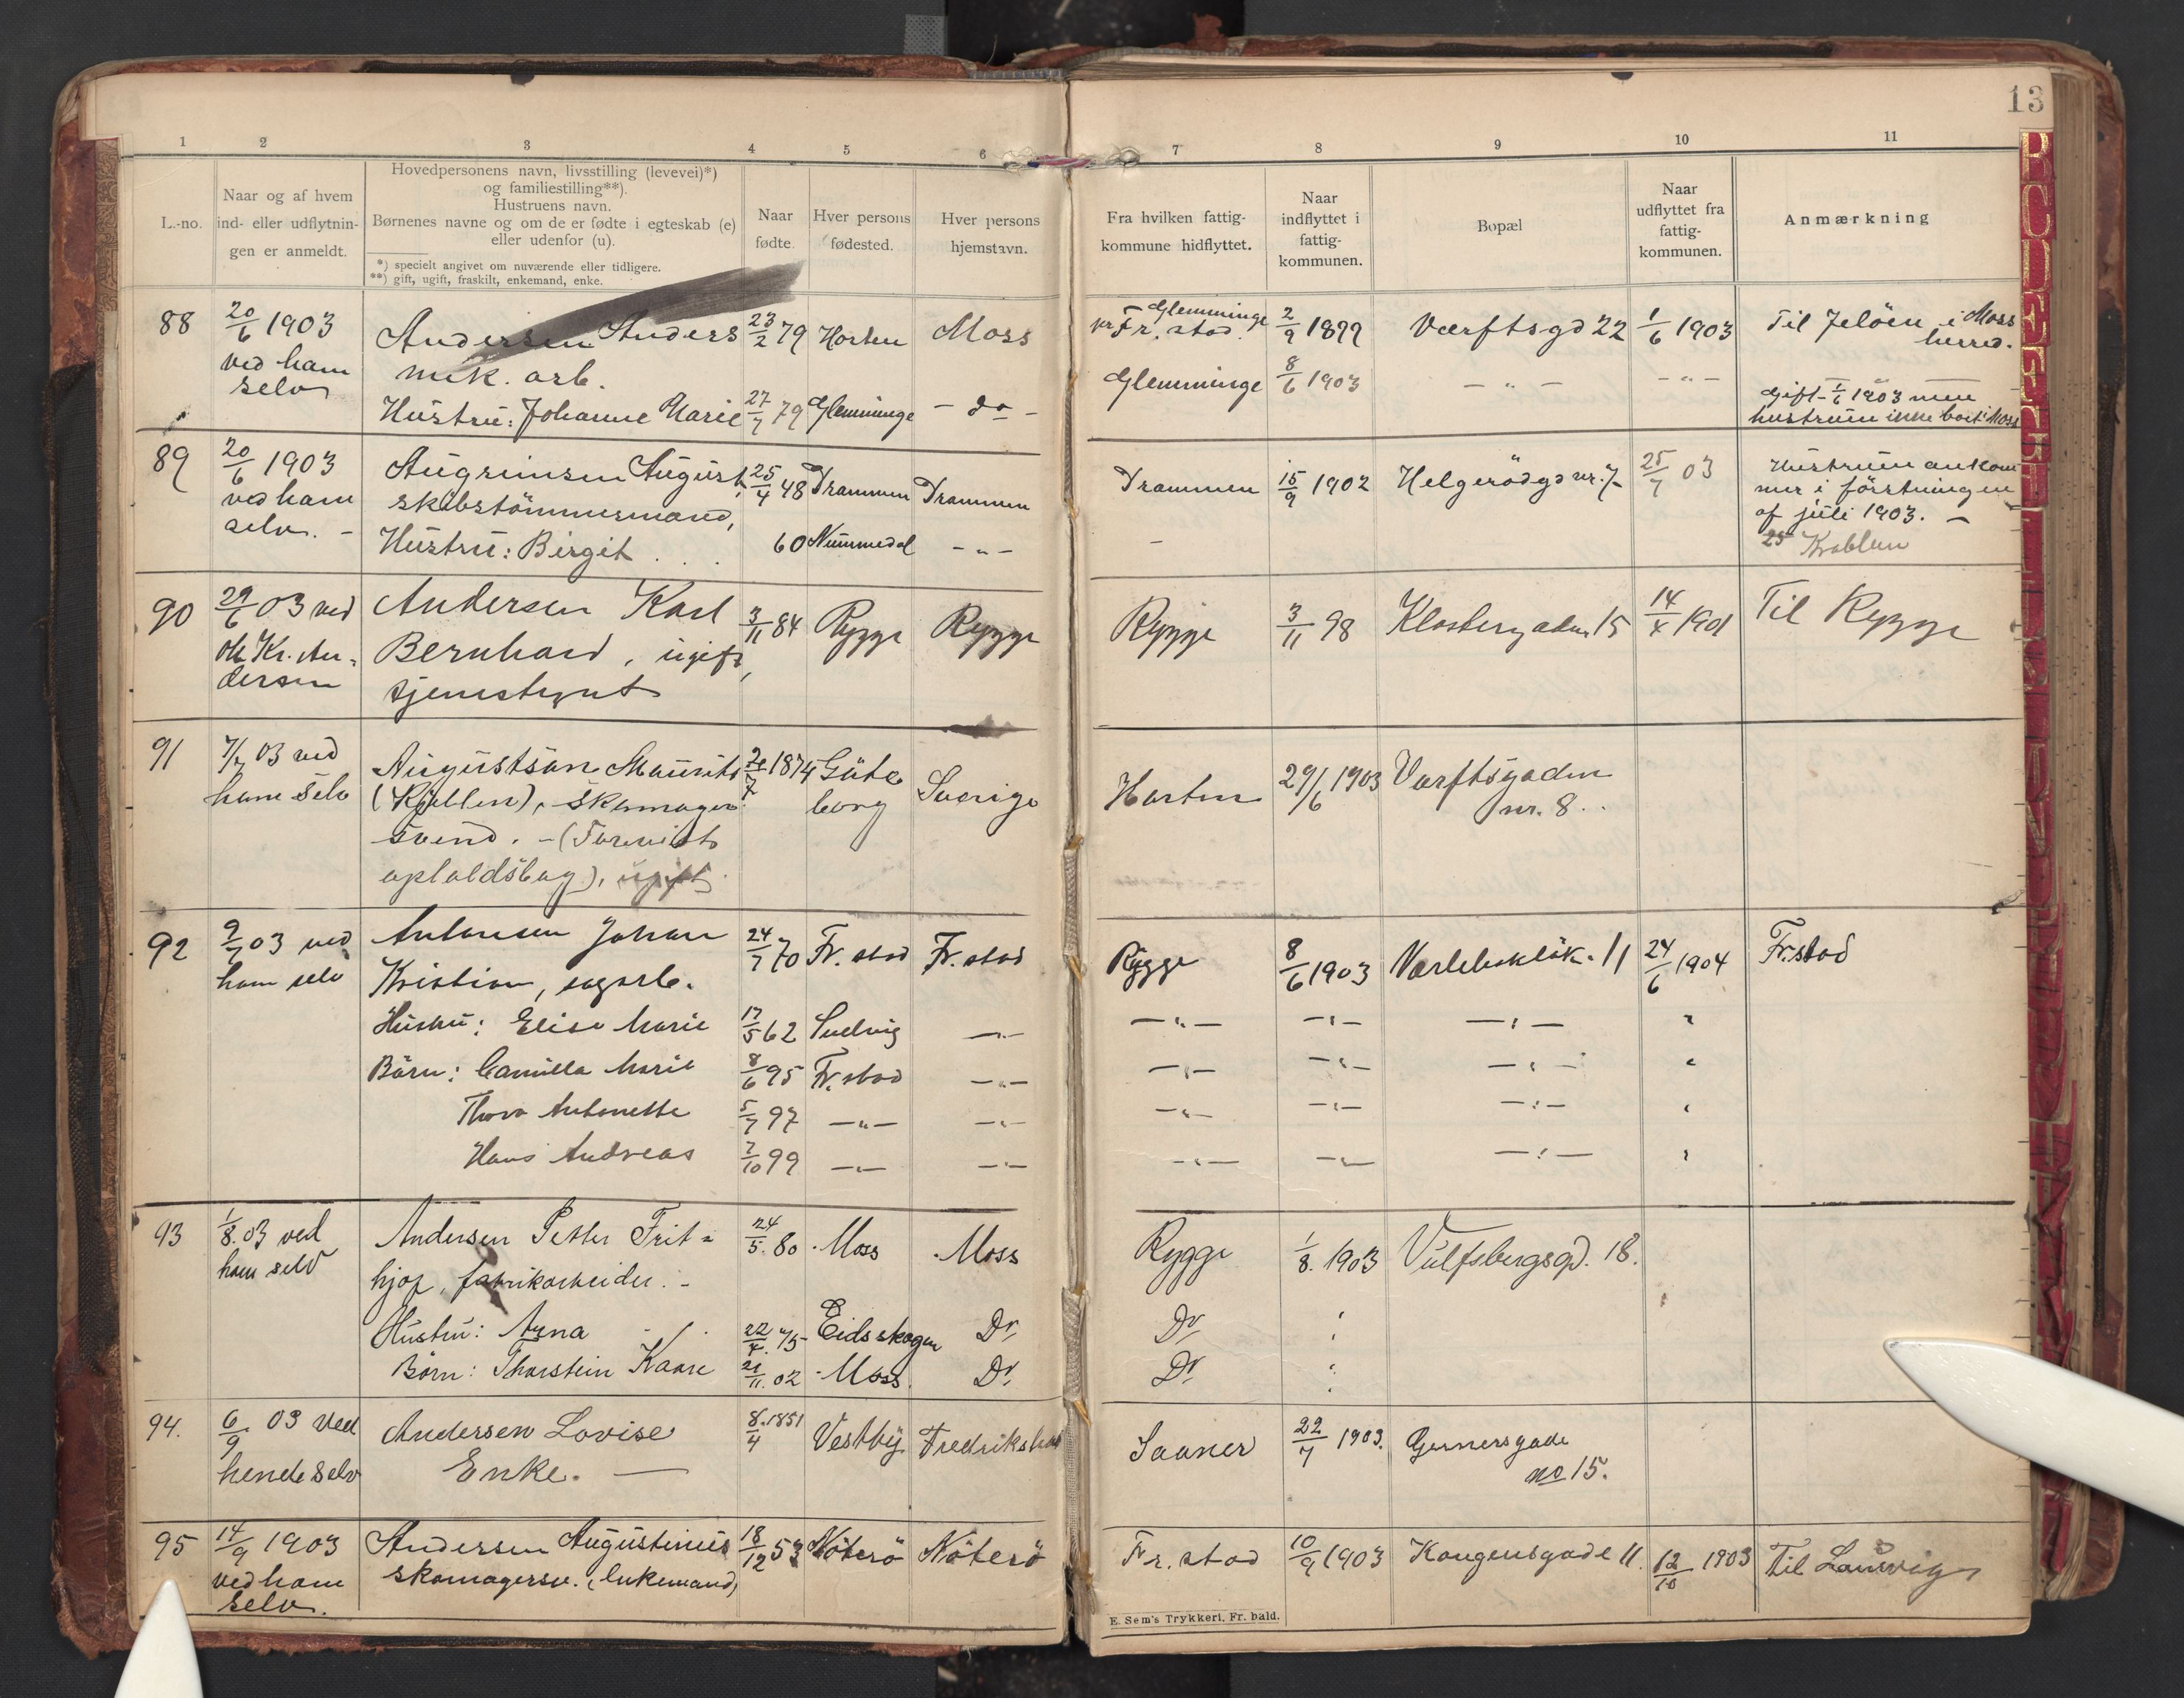 13
1 2 3 4 5 6 7 8 9 10 11
L.-no.
Naar og af hvem
ind- eller udflytnin-
gen er anmeldt.
Hovedpersonens navn, livsstilling (levevei)*)
og familiestilling**).
Hustruens navn.
Børnenes navne og om de er fødte i egteskab (e)
eller udenfor (u).
*) specielt angivet om nuværende eller tidligere.
**) gift, ugift, fraskilt, enkemand, enke.
Naar
fødte.
Hver persons
fødested.
Hver persons
hjemstavn.
Fra hvilken fattig-
kommune hidflyttet.
Naar
indflyttet i
fattig-
kommunen.
Bopæl
Naar
udflyttet fra
fattig-
kommunen.
Anmærkning
88
20/6 1903
ved ham
selv
Andersen Anders
mek. arb.
Hustru: Johanne Marie
23/2 79
27/7 79
Horten
Glemminge
Moss
- do -
Glemminge
pr Fr. stad.
Glemminge
2/9 1899
8/6 1903
Værftsgd 22
- " -
1/6 1903
- " -
Til Jelöen i Moss
herred.
Gift 1/6 1903 men
hustruen ikke boet i Moss
89
20/6 1903
ved ham
selv. -
Augrimsen August,
skibstömmermand,
Hustru: Birgit
25/4 48
60
Drammen
Nummedal
Drammen
- " -
Drammen
-
15/9 1902
Helgerödgd nr. 7
25/7 03
Hustruen ankom
mer i förstningen
af juli 1903. -
90
29/6 03 ved
Kr. An-
dersen
Andersen Karl
Bernhard, ugift,
tjenestegut
3/11 84
Rygge
Rygge
Rygge
3/11 98
Klostergaden 15
14/4 1901
Til Rygge
91
7/7 03 ved
ham selv
Augustson Maurits
(Kjellen), skomager
svend. - (Forevist
opholdsbog), ugift
20/7 1874
Göte
borg
Sverige
Horten
29/6 1903
Værftsgaden
nr. 8.
92
9/7 03 ved
ham selv
Antonsen Johan
Kristian, sagarb.
Hustru: Elise Marie
Børn: Camilla Marie
Thora Antonette
Hans Andreas
24/7 70
17/5 62
8/6 95
5/7 97
7/10 99
Fr. stad
Fr. stad
- " -
- " -
Fr. stad
- " -
- " -
- " -
- " -
Rygge
- " -
- " -
- " -
- " -
8/6 1903
- " -
- " -
- " -
- " -
Varlebaklök. 11
- " -
- " -
- " -
- " -
24/6 1904
"
"
"
"
Fr. stad
93
1/8. 03 ved
ham selv
Andersen Petter Frit-
hjof, fabrikarbeider. -
Hustru: Anna
Børn: Thorstein Kaare
24/5. 80
22/4. 75
21/11. 02
Moss
Eidsskogen
Moss
Moss
Do
Do
Rygge
Do
Do
1/8. 1903
"
"
Vulfsbergsgd. 18.
94.
6/9 03 Ved
hende selv
Andersen Lovise
Enke. -
8/4 1851
Vestby
Fredrikshald
Saaner
22/7 1903.
Gernersgade
no 15.
95
14/9 1903
ved ham
selv.
Andersen Augustinius
skomagersv. (enkemand)
18/12 53
Nöterö
Nöterö
Fr. stad
10/9 1903
Kongensgade 11.
12/10 1903
Til Laurvig
E. Sem's Trykkeri, Fr. hald.
B C D E F